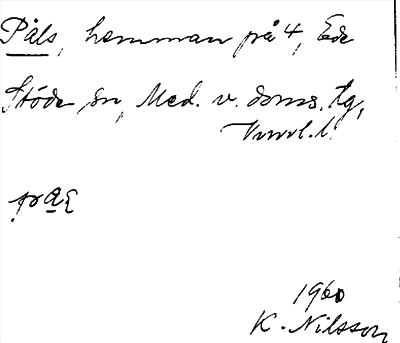 Påls, hemman på 4, Ede
Stöde sn, Med. v. doms. tg,
Vnrl. l.
1960
K. Nilsson